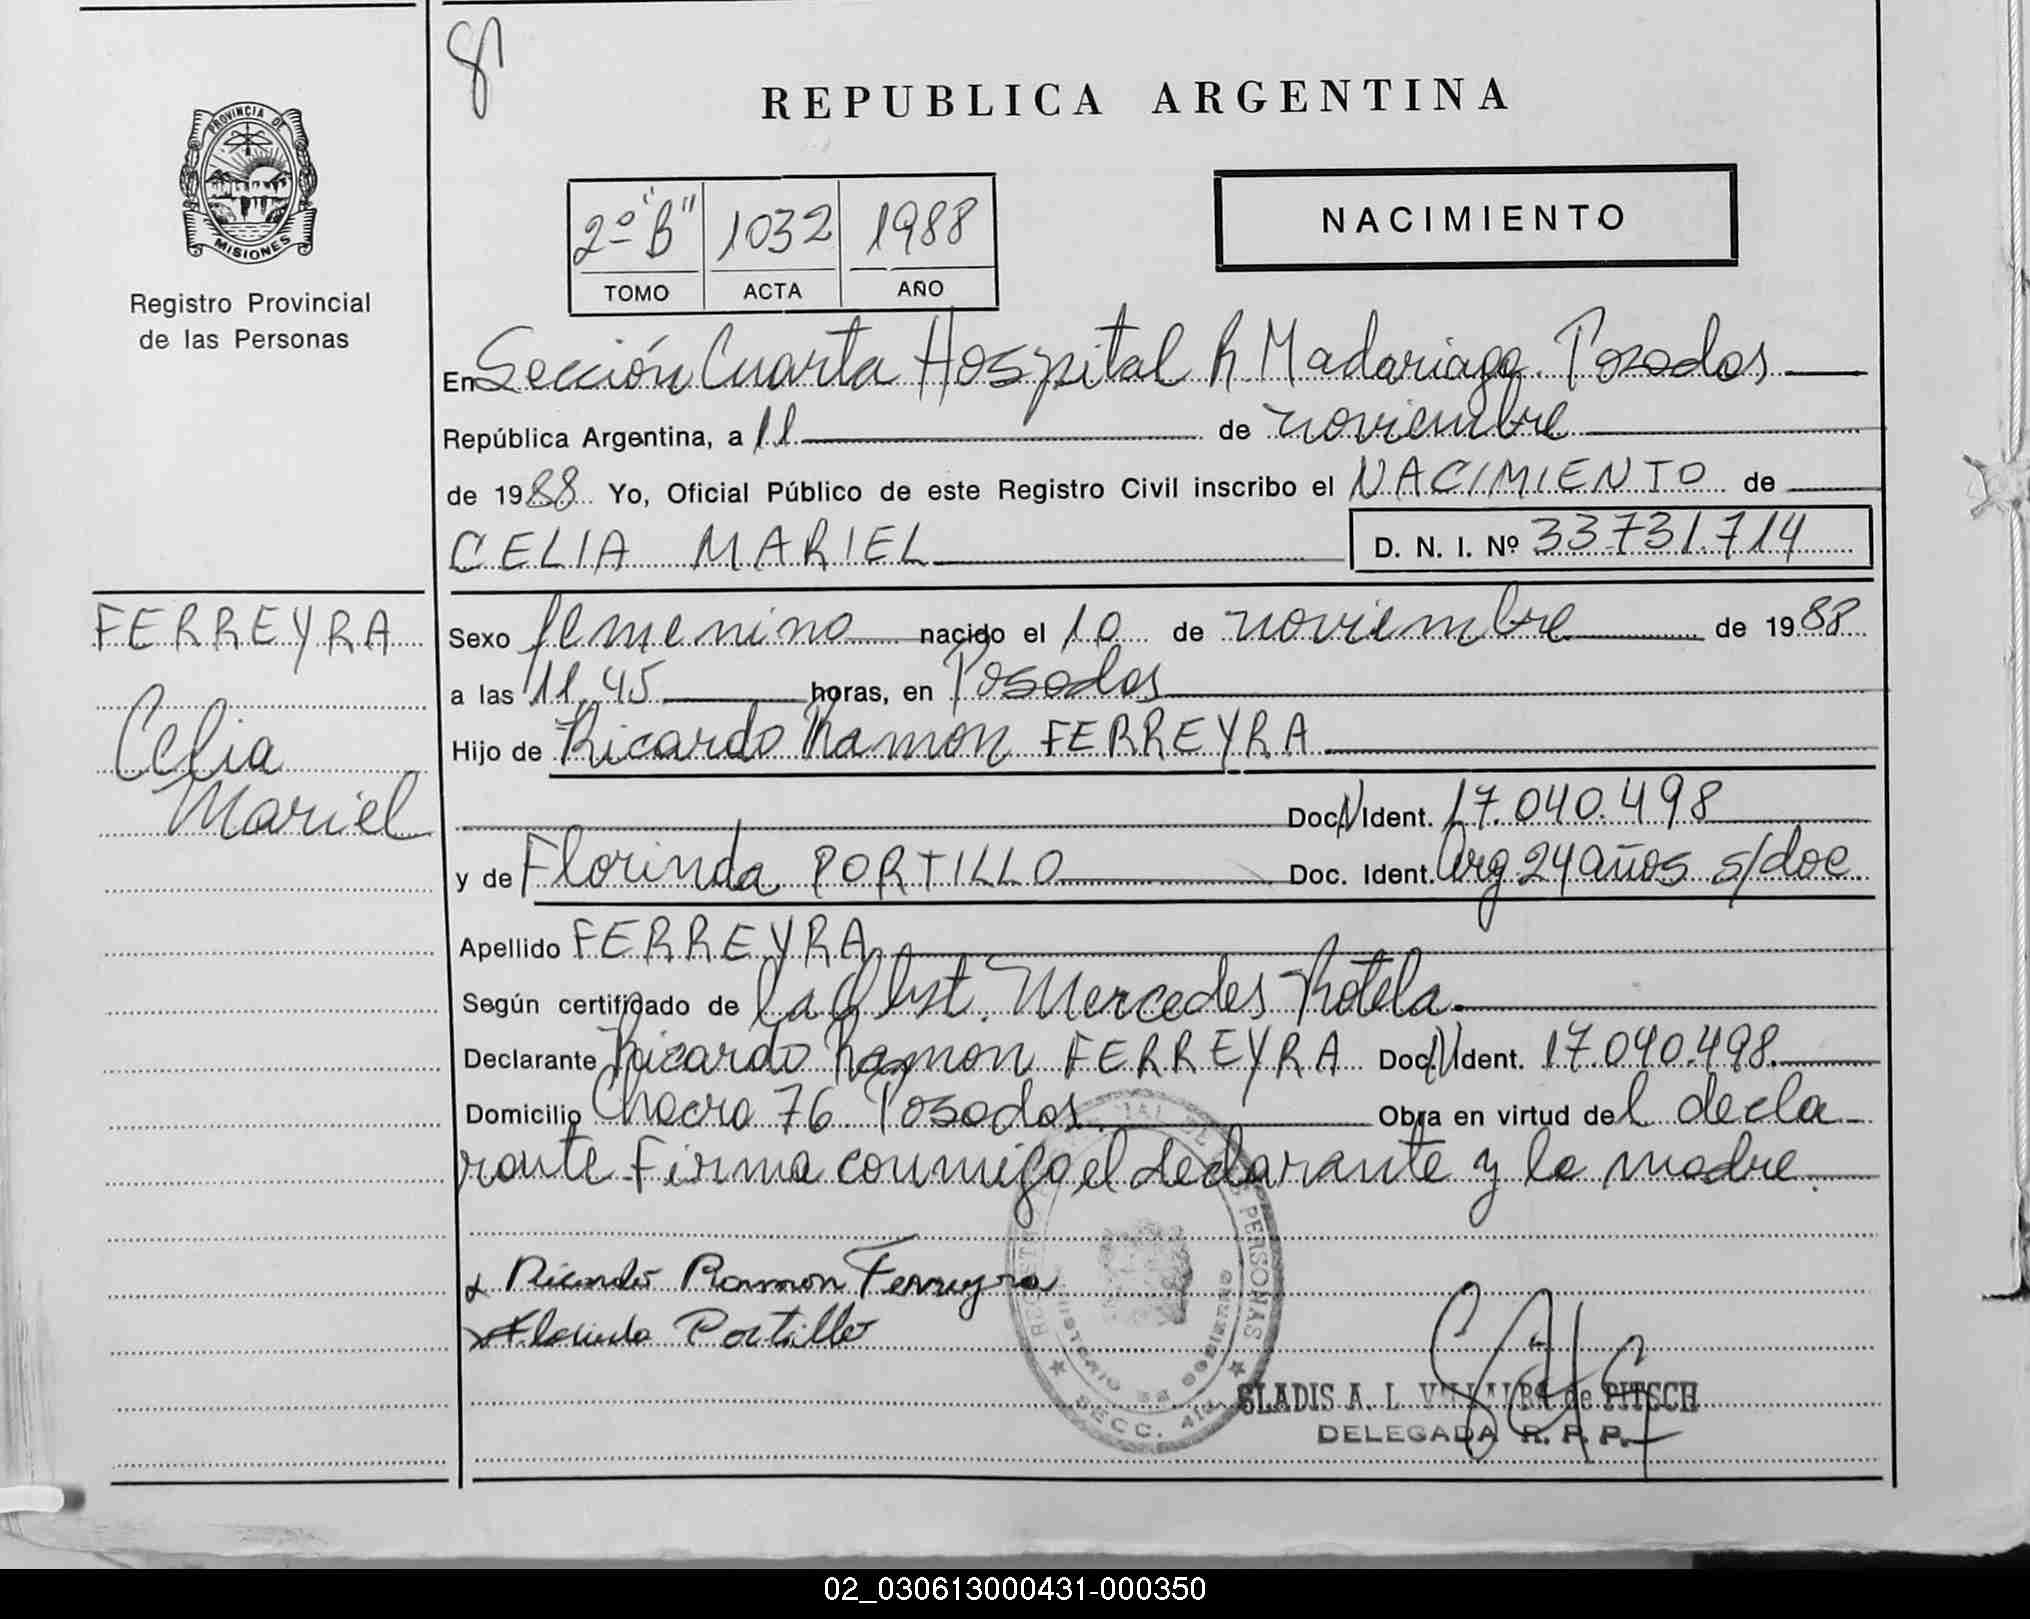 8
PROVINCIA DE
MISIONES
Registro Provincial
de las Personas
REPUBLICA ARGENTINA
2º "B" 1032 1988
TOMO ACTA AÑO
NACIMIENTO
En Sección Cuarta Hospital R Madariaga. Posadas
República Argentina, a 11 de noviembre
de 1988 Yo, Oficial Público de este Registro Civil inscribo el NACIMIENTO de
CELIA MARIEL D. N. I. Nº 33.731.714
FERREYRA
Celia
Mariel
Sexo femenino nacido el 10 de noviembre de 1988
a las 11.45 horas, en Posadas
Hijo de Ricardo Ramon FERREYRA
Doc. N Ident. 17.040.498
y de Florinda PORTILLO Doc. Ident. Arg 24 años s/doc.
Apellido FERREYRA
Según certificado de la Obst. Mercedes Rotela.
Declarante Ricardo Ramon FERREYRA Doc. N Ident. 17.040.498.
Domicilio Chacra 76. Posadas. Obra en virtud del decla
rante. Firma conmigo el declarante y la madre.
x Ricardo Ramon Ferreyra
x Florinda Portillo
PERSONAS
MINISTERIO DE GOBIERNO
SECC. 4ta
GLADIS A. L. VILLALBA de PITSCH
DELEGADA R. P. P.
02_030613000431-000350